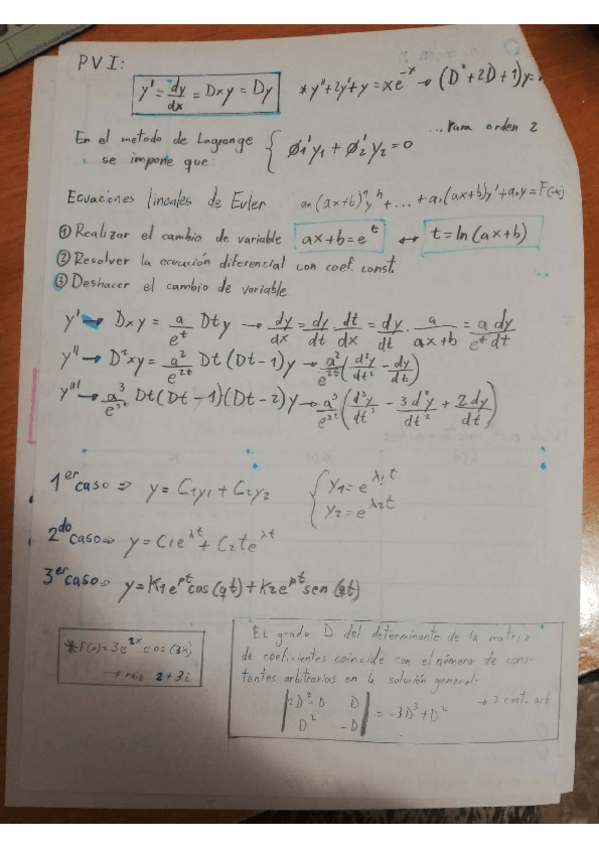 PVI:
y' = dy/dx = Dxy = Dy   * y''+2y'+y = xe^-x → (D²+2D+1)y=
... Para orden 2
En el metodo de Lagrange { Ø1'y1 + Ø2'y2 = 0
se impone que:
Ecuaciones lineales de Euler   an(ax+b)^n y^n + ... + a1(ax+b)y' + a0y = F(x)
① Realizar el cambio de variable   ax+b = e^t ↔ t = ln(ax+b)
② Resolver la ecuación diferencial con coef. const.
③ Deshacer el cambio de variable
y' → Dxy = a/e^t Dty → dy/dx = dy/dt · dt/dx = dy/dt · a/(ax+b) = a/e^t dy/dt
y'' → D²xy = a²/e^2t Dt(Dt-1)y → a²/e^2t (d²y/dt² - dy/dt)
y''' → a³/e^3t Dt(Dt-1)(Dt-2)y → a³/e^3t (d³y/dt³ - 3d²y/dt² + 2dy/dt)
1er caso ⇒ y = C1y1 + C2y2   { y1 = e^λ1t
y2 = e^λ2t
2do caso ⇒ y = C1e^λt + C2te^λt
3er caso ⇒ y = K1e^pt cos(qt) + K2e^pt sen(qt)
* F(x) = 3e^2x cos(3x)
→ raiz 2+3i
El grado D del determinante de la matriz
de coeficientes coincide con el número de cons-
tantes arbitrarias en la solución general:
|2D²-D   D|
|D²   -D| = -3D³+D²   → 3 cost. arb